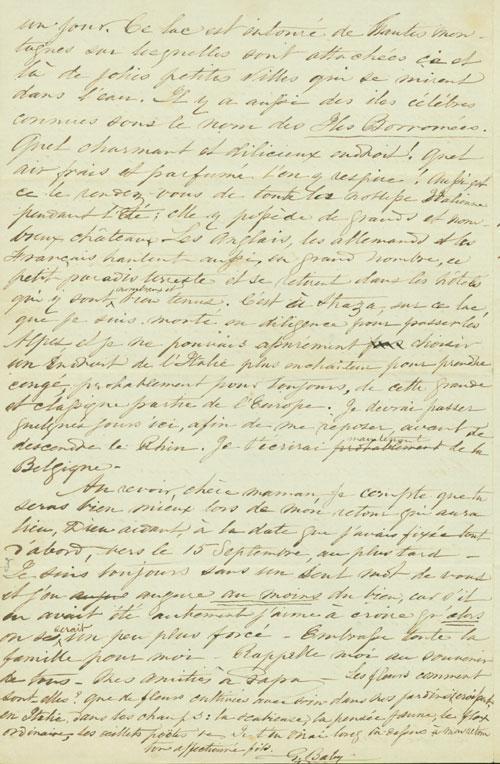 un jour. Ce lac est entouré de hautes mon-
tagnes sur lesquelles sont attachées ça et
là de jolies petites villes qui se mirent
dans l'eau. Il y a aussi des îles célèbres
connues sous le nom des Iles Borromées.
Quel charmant et délicieux endroit! Quel
air frais et parfumé l'on y respire! Aussi est
ce le rendez-vous de toute la noblesse Italienne
pendant l'Été; elle y possède de grands et nom-
breux châteaux. Les Anglais, les allemands et les
Français hantent aussi, en grand nombre, ce
petit paradis terrestre et se retirent dans les hôtels
qui y sont nombreux et bien tenus. C'est à Straza, sur ce lac,
que je suis monté en diligence pour passer les
Alpes et je ne pouvais assurement pas choisir
un endroit de l'Italie plus enchanteur pour prendre
congé, probablement pour toujours, de cette grande
et classique partie de l'Europe. Je devrai passer
quelques jours ici, afin de me reposer, avant de
descendre le Rhin. Je t'écrirai probablement maintenant de la
Belgique.
Au revoir, chère maman, je compte que tu
seras bien mieux lors de mon retour qui aura
lieu, Dieu aidant, à la date que j'avais fixée tout
d'abord, vers le 15 Septembre, au plus tard -
Je suis toujours sans un seul mot de vous
et j'en augure au moins du bien, car s'il
en avait été autrement j'aime à croire qu'alors
on se serait un peu plus forcé - Embrasse toute la
famille pour moi - Rappelle moi au souvenir
de tous - Mes amitiés à papa - Les fleurs comment
sont-elles? que de fleurs cultivées avec soin dans nos jardins, croissent
en Italie, dans les champs: la pensée jaune, le flox
ordinaire, les œillets poètes
ton affectionné fils.
G. Baby